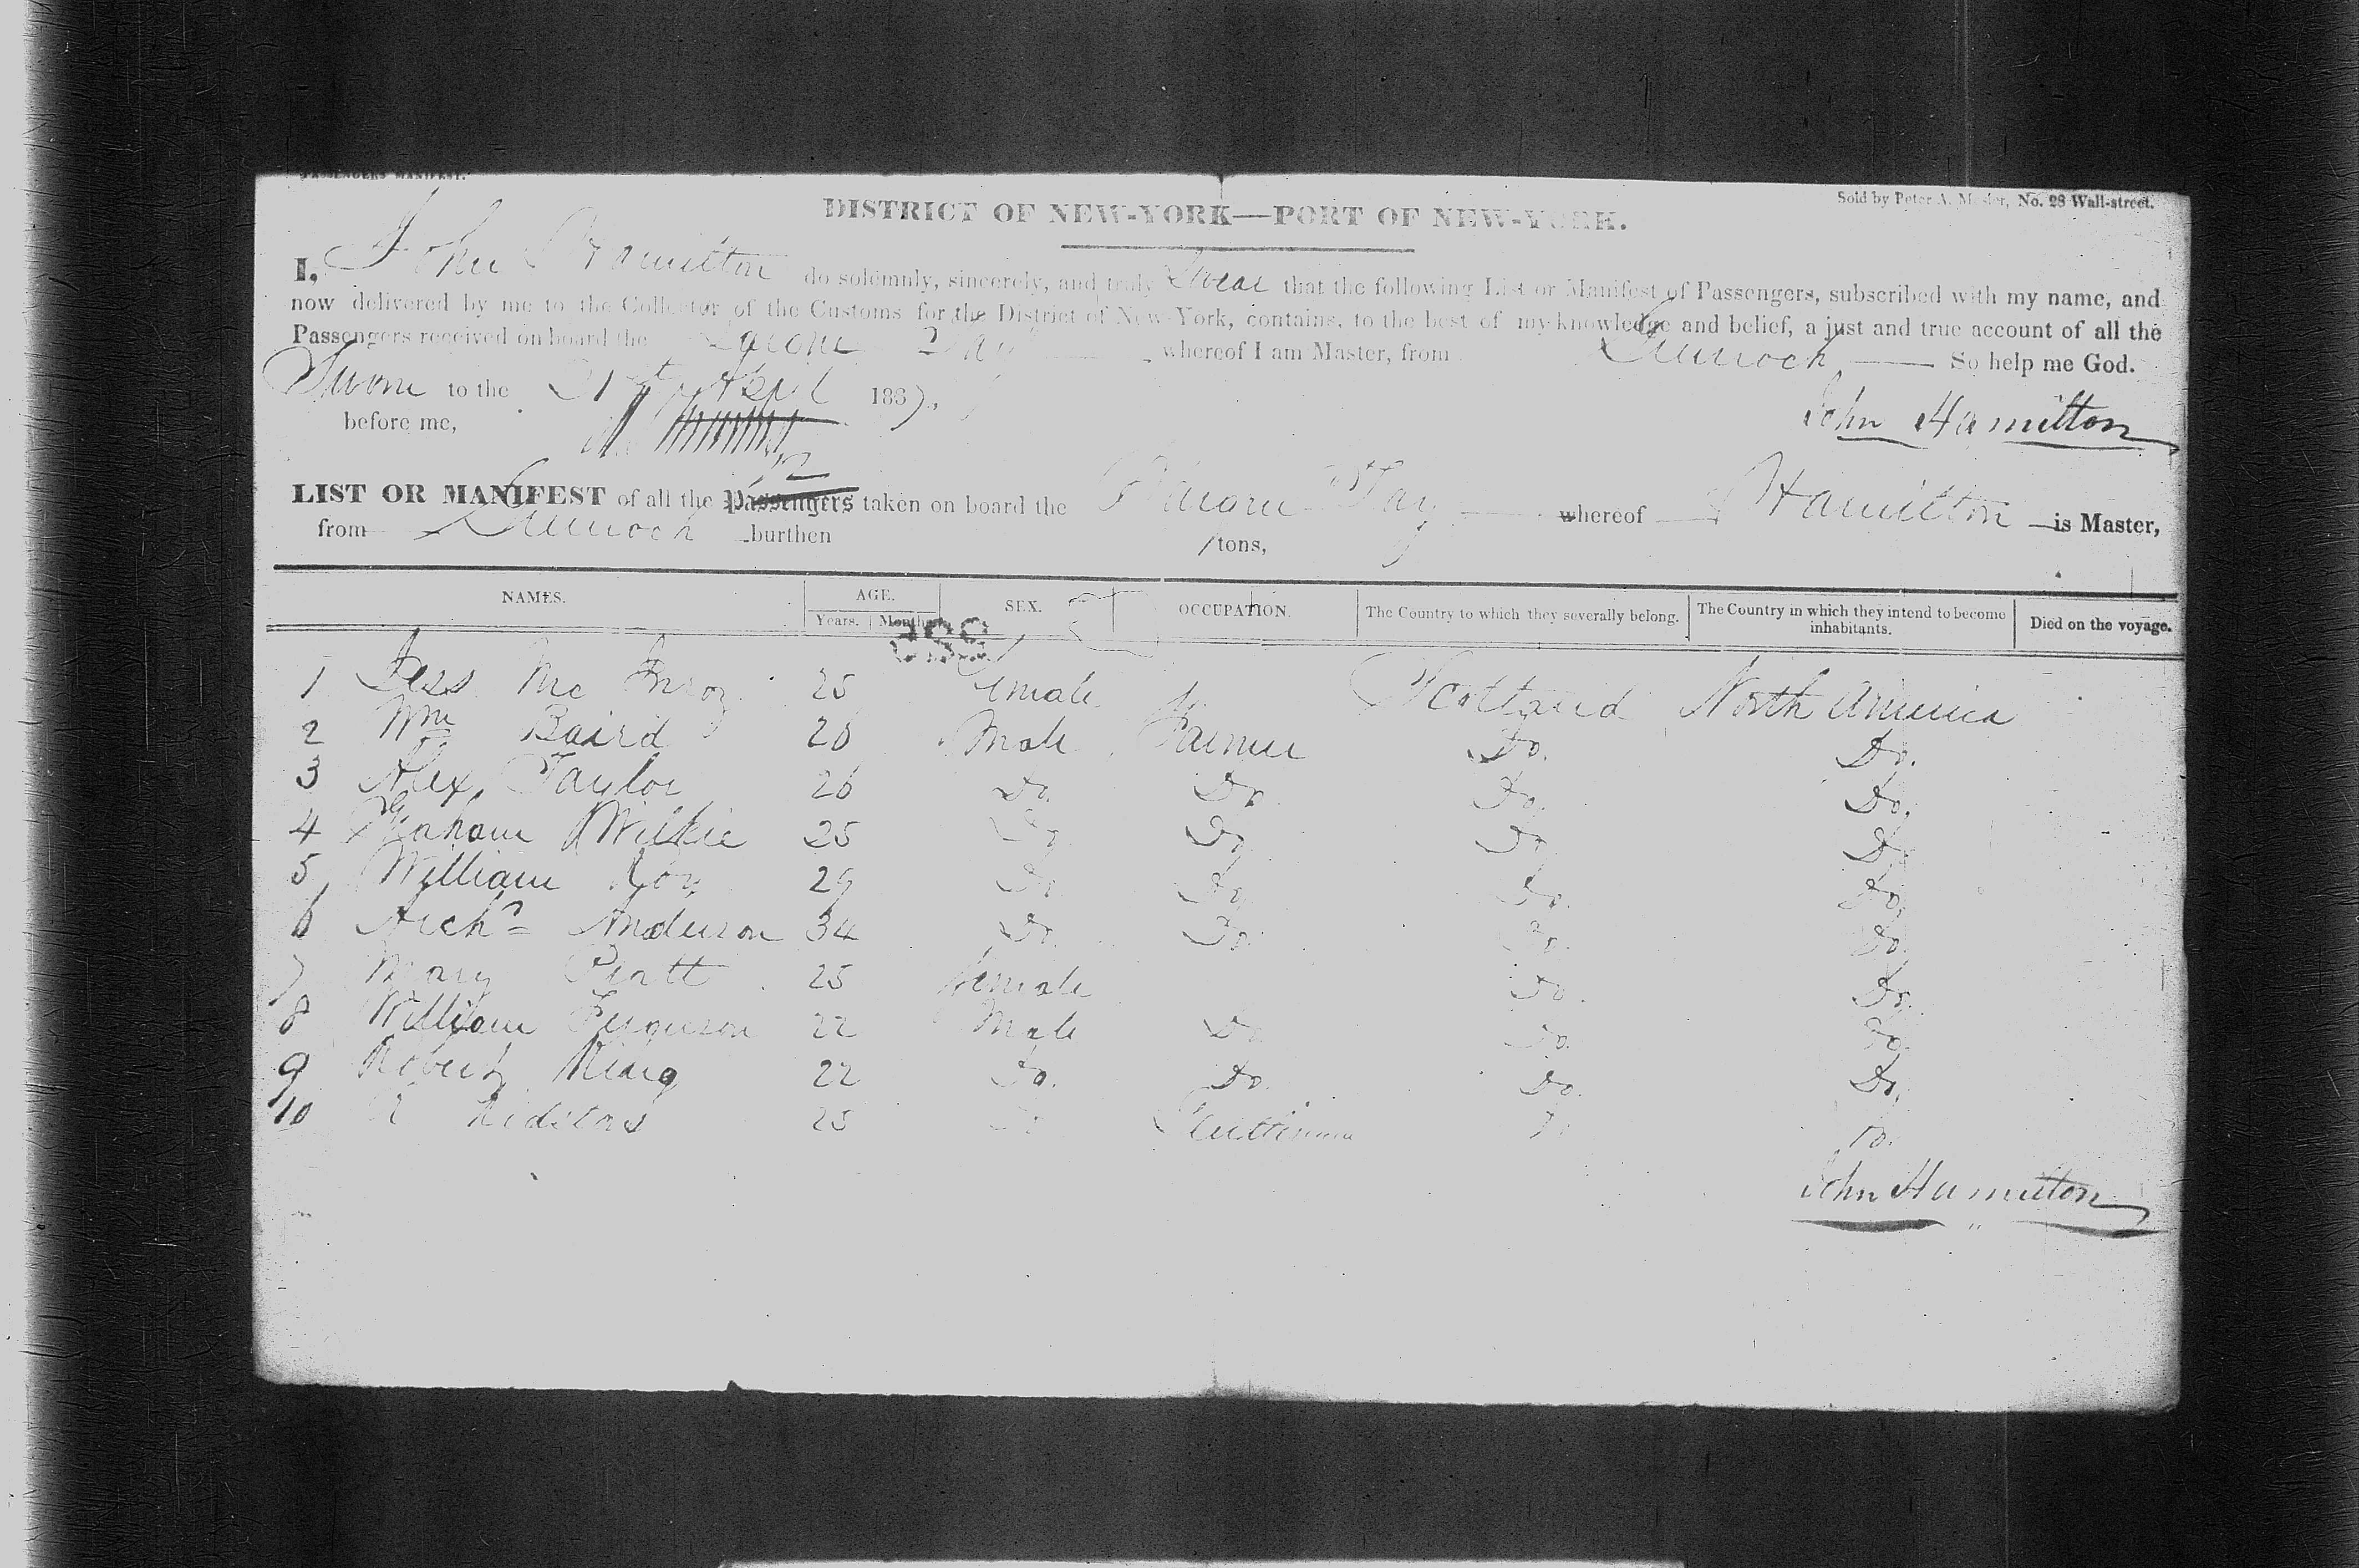 PASSENGERS MANIFEST.
Sold by Peter A. Mesier, No. 28 Wall-street.
DISTRICT OF NEW-YORK—PORT OF NEW-YORK.
I, John Hamilton do solemnly, sincerely, and truly Swear that the following List or Manifest of Passengers, subscribed with my name, and
now delivered by me to the Collector of the Customs for the District of New-York, contains, to the best of my knowledge and belief, a just and true account of all the
Passengers received on board the Tay whereof I am Master, from Greenock So help me God.
Sworn to the 21st April 1837,
before me,
John Hamilton
LIST OR MANIFEST of all the Passengers taken on board the Barque Tay whereof J Hamilton is Master,
from Greenock burthen tons,
NAMES. AGE. SEX. OCCUPATION. The Country to which they severally belong. The Country in which they intend to become inhabitants. Died on the voyage.
Years. Months
1 Jess Mc Inroy 25 Female Scotland North America
2 Wm Baird 26 Male Farmer Do. Do.
3 Alex. Taylor 26 Do. Do. Do. Do.
4 Graham Wilkie 25 Do Do Do Do
5 William Roy 29 Do Do Do. Do.
6 Archd Anderson 34 Do. Do. Do. Do.
7 Mary Pratt 25 Female Do. Do.
8 William Ferguson 22 Male Do. Do. Do.
9 Robert 22 Do. Do. Do. Do.
10 25 Do Do Do.
John Hamilton